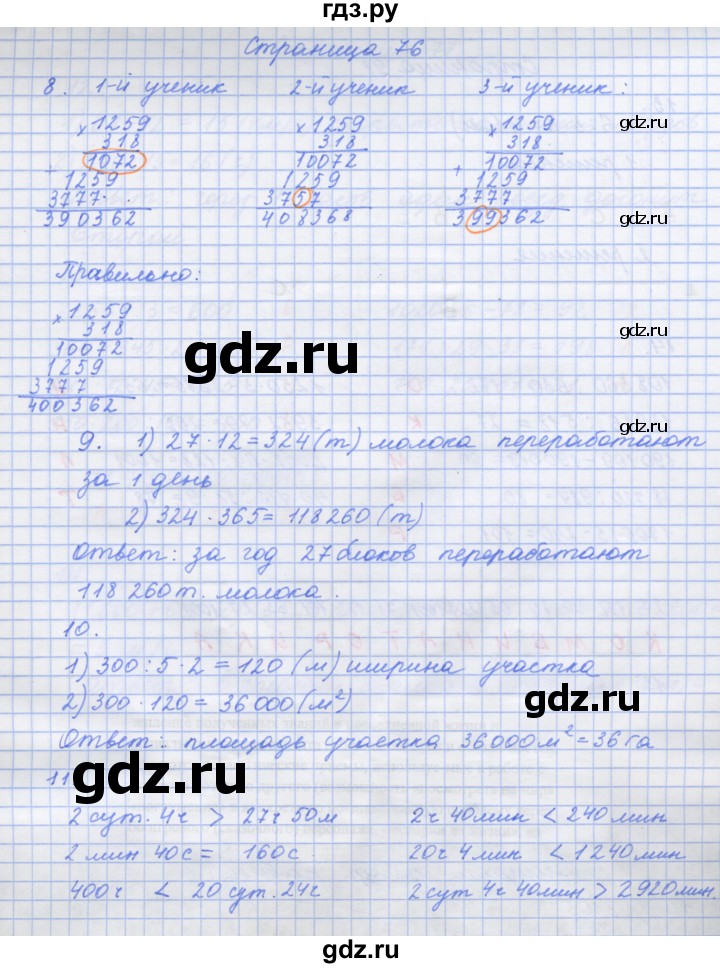 гдз.ру
Страница 76
8. 1-й ученик 2-й ученик 3-й ученик:
×1259 ×1259 ×1259
318 318 318
+ 1072 10072 + 10072
1259 1259 1259
3777 3757 3777
390362 408368 399362
Правильно:
×1259
318
10072
1259
3777
400362
9. 1) 27·12=324(т) молока переработают
за 1 день
2) 324·365=118260(т)
Ответ: за год 27 блоков переработают
118 260т. молока.
10.
1) 300:5·2=120(м) ширина участка
2) 300·120=36000(м²)
Ответ: площадь участка 36000м²=36га
11
2 сут. 4ч > 27ч 50м 2ч 40мин < 240мин
2 мин 40с = 160с. 20ч 4мин < 1240мин
400ч < 20 сут. 24ч 2 сут 4ч 40мин > 2920мин.
gdz.ru
gdz.ru
gdz.ru
gdz.ru
gdz.ru
gdz.ru
gdz.ru
gdz.ru
gdz.ru
gdz.ru
gdz.ru